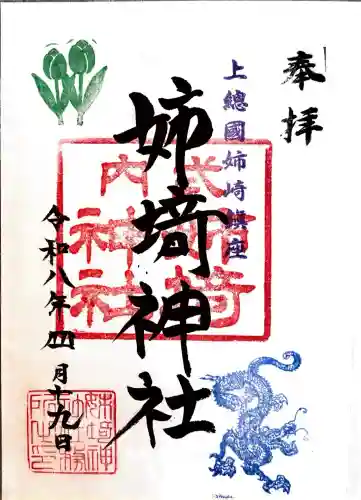 奉拝
上總國姉﨑鎮座
姉埼神社
式内
姉埼神社
令和八年四月十九日
姉埼神社務所之印